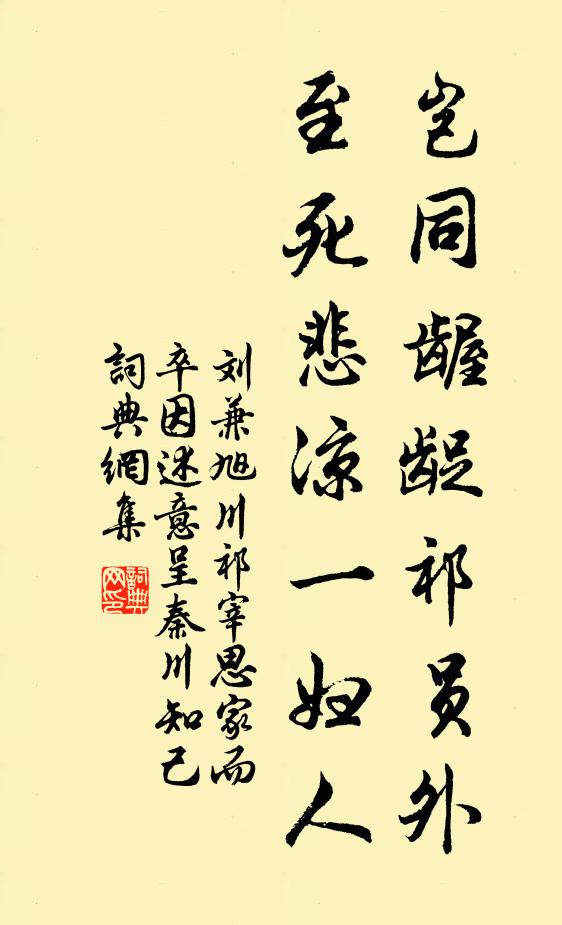 岂同龌龊祁员外
至死悲凉一妇人
刘兼旭川祁宰思家而
卒因述意呈秦川知己
詞典網集
詞典
网印